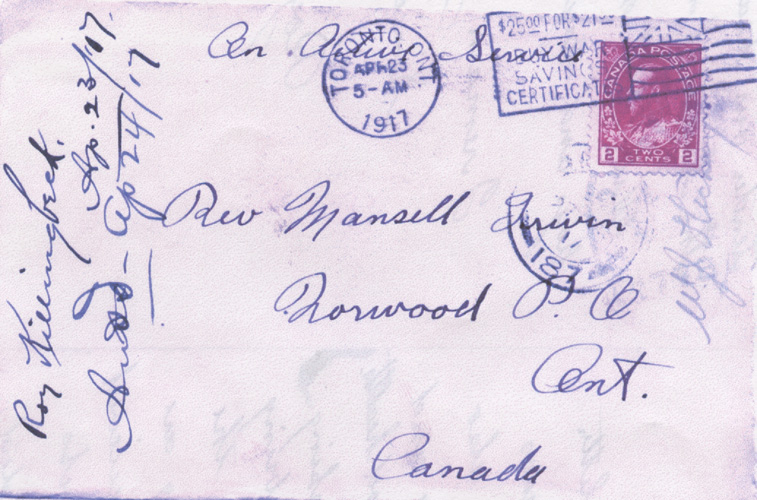 An Active Service
TORONTO, ONT.
APR 23
5-AM
1917
$25.00 FOR $21.50
WAR
SAVINGS
CERTIFICAT
CANADA POSTAGE
2 TWO CENTS 2
Rev Mansell Irwin
Norwood P. O
Ont.
Canada
Roy Killingbeck.
Ap. 23/17.
Ap 24/17
187